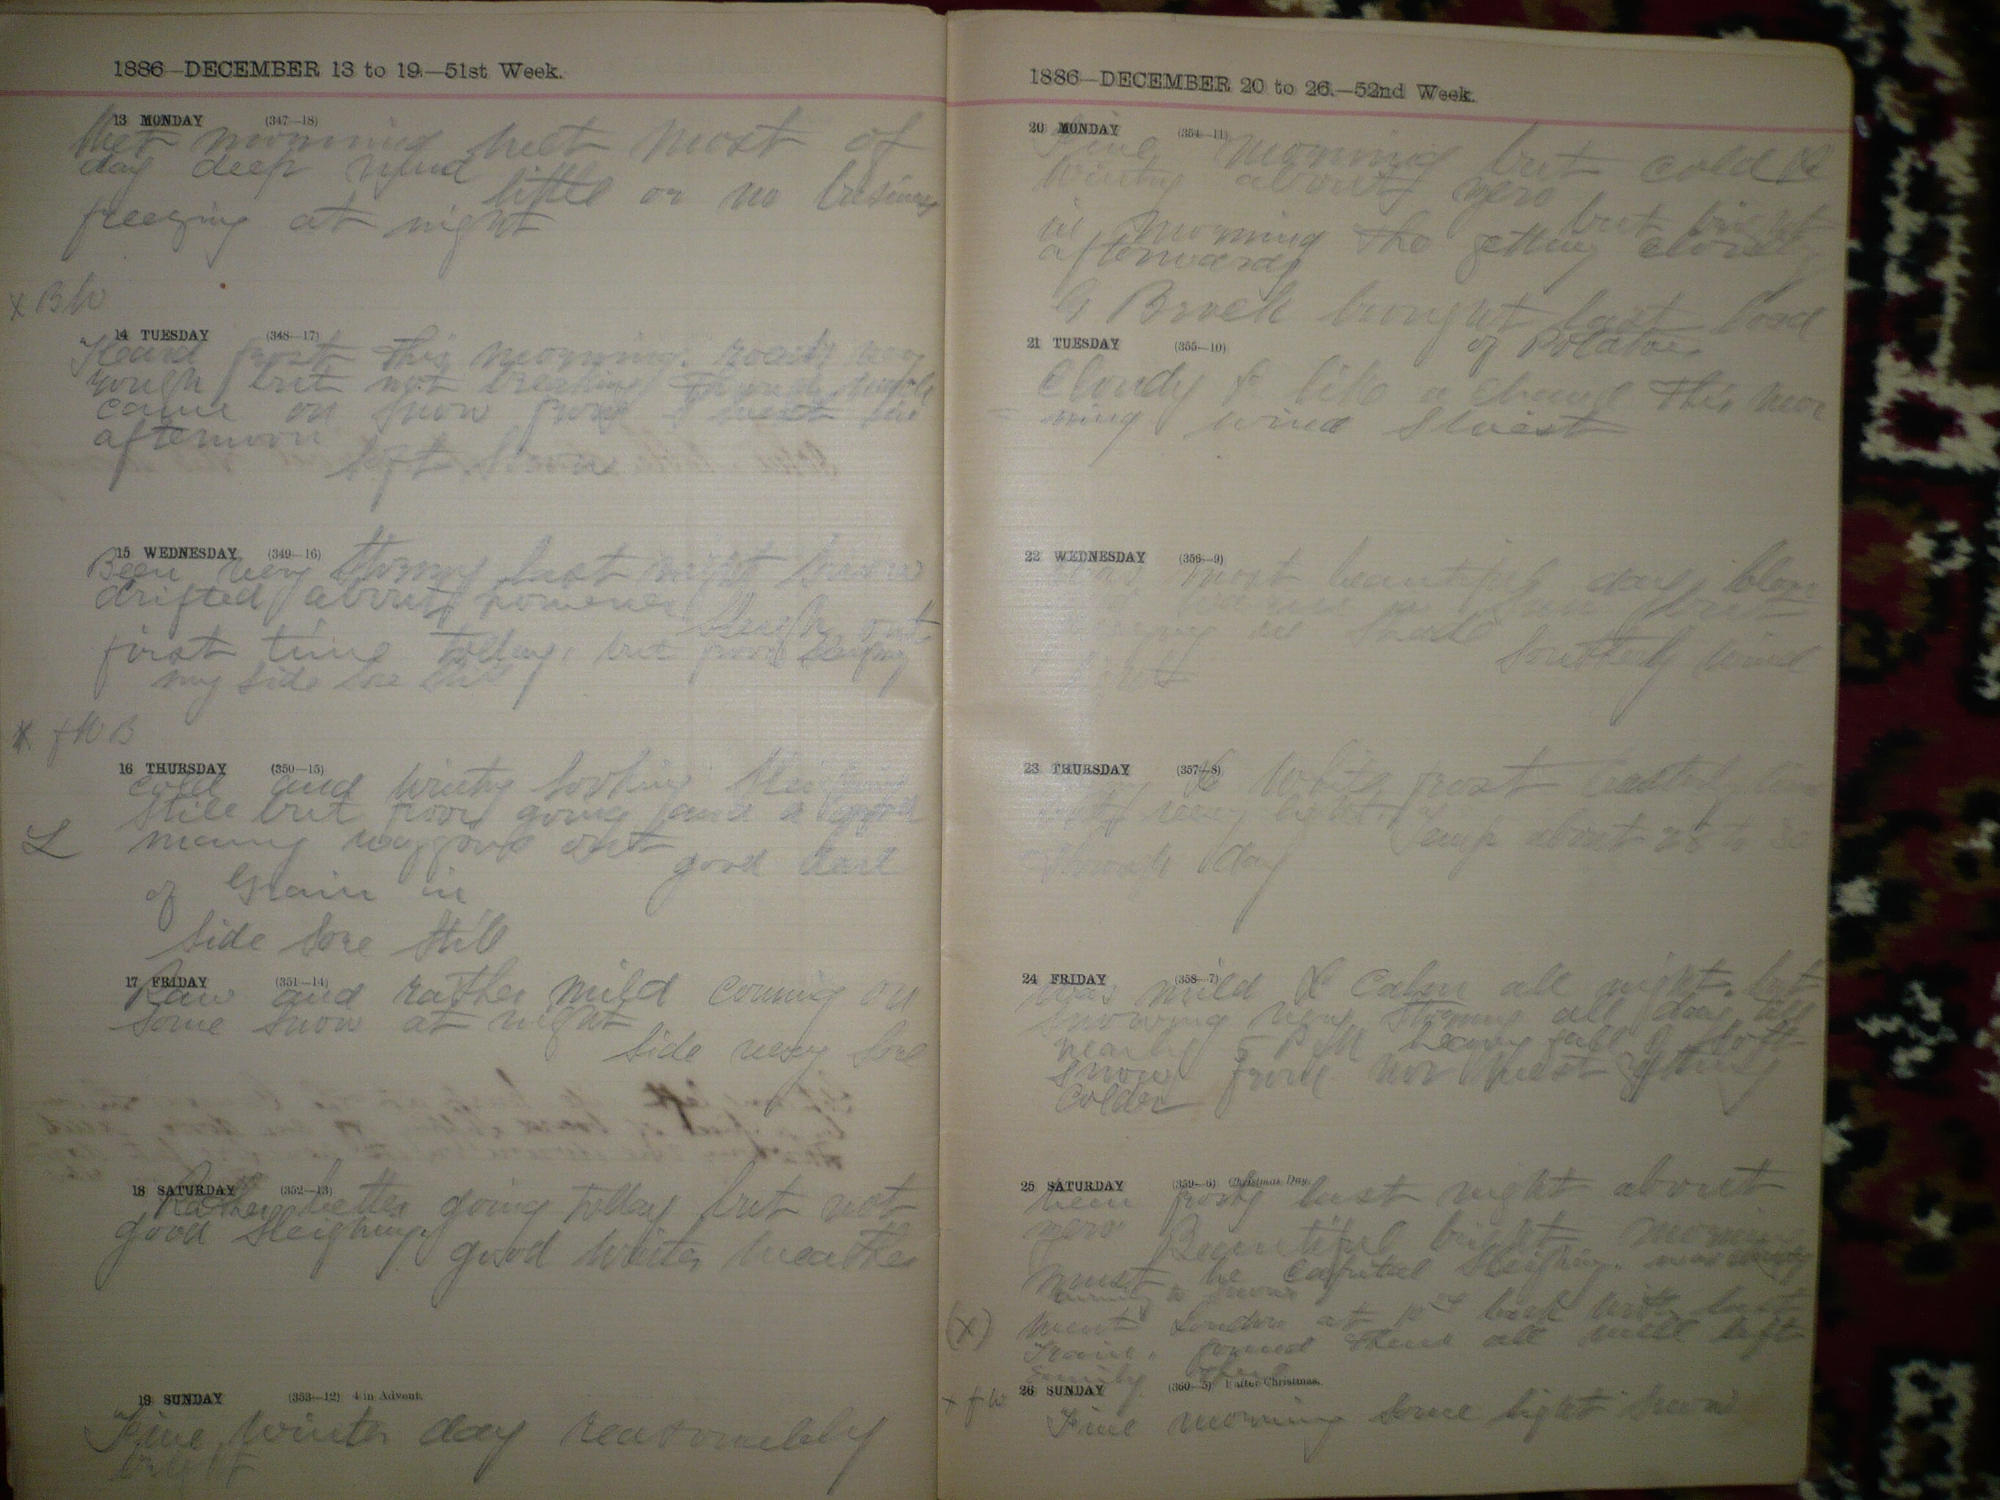 1886—DECEMBER 13 to 19.—51st Week.
13 MONDAY (347—18)
morning wet most of
day deep mud
little or no business
freezing at night
x B W
14 TUESDAY (348—17)
Heard frost this morning. roads very
rough but not breaking through
came on snow from S west in
afternoon
15 WEDNESDAY (349—16)
Been very stormy last night snow
drifted about
Sleigh out
first time today, but poor sleighing
my side sore still
x f W B
16 THURSDAY (350—15)
cold and wintry looking
still but poor going and a good
L many waggons out
good deal
of Grain in
side sore still
17 FRIDAY (351—14)
Raw and rather mild coming on
some snow at night
side very sore
18 SATURDAY (352—13)
Rather better going today but not
good sleighing.
good winter weather
19 SUNDAY (353—12) 4 in Advent.
Fine winter day reasonably
1886—DECEMBER 20 to 26.—52nd Week.
20 MONDAY (354—11)
Fine morning but cold &
wintry about zero
but bright
in morning tho getting cloudy
afterwards
G Brock brought last load
of Potatoes
21 TUESDAY (355—10)
Cloudy & like a change this mor
=ning wind S west
22 WEDNESDAY (356—9)
most beautiful day
in sun but
in shade
Southerly wind
23 THURSDAY (357—8)
& White frost easterly wind
very light.
Temp about 28 to 30
through day
24 FRIDAY (358—7)
Was mild & Calm all night. but
snowing very stormy all day till
nearly 5 PM heavy fall of soft
snow from nor West getting
Colder
25 SATURDAY (359—6) Christmas Day.
been frosty last night about
zero Beautiful bright morning
must be capital sleighing.
(x) Went London at back with last
Train. found them all well left
Emily there
x f W
26 SUNDAY (360—5) 1 after Christmas.
Fine morning some light snow